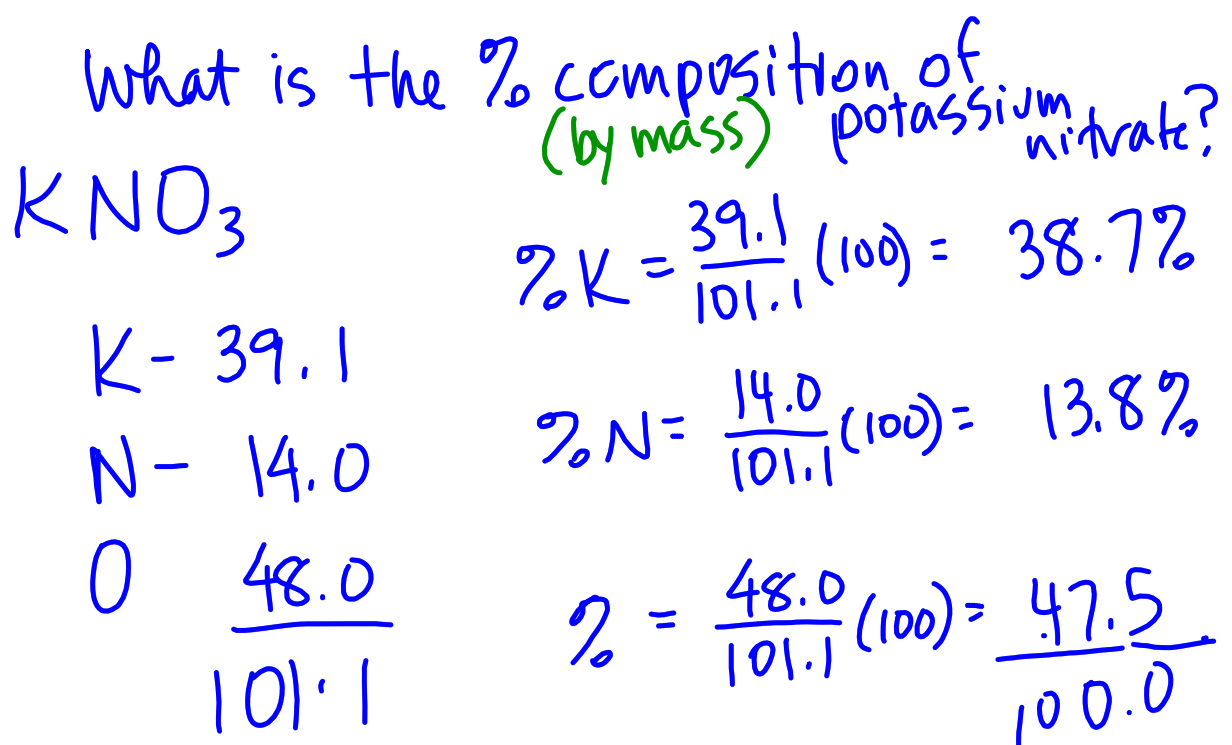 What is the % composition of
(by mass) potassium
nitrate?
KNO₃
K - 39.1
N - 14.0
O 48.0
101.1
%K = 39.1/101.1 (100) = 38.7%
%N = 14.0/101.1 (100) = 13.8%
% = 48.0/101.1 (100) = 47.5
100.0